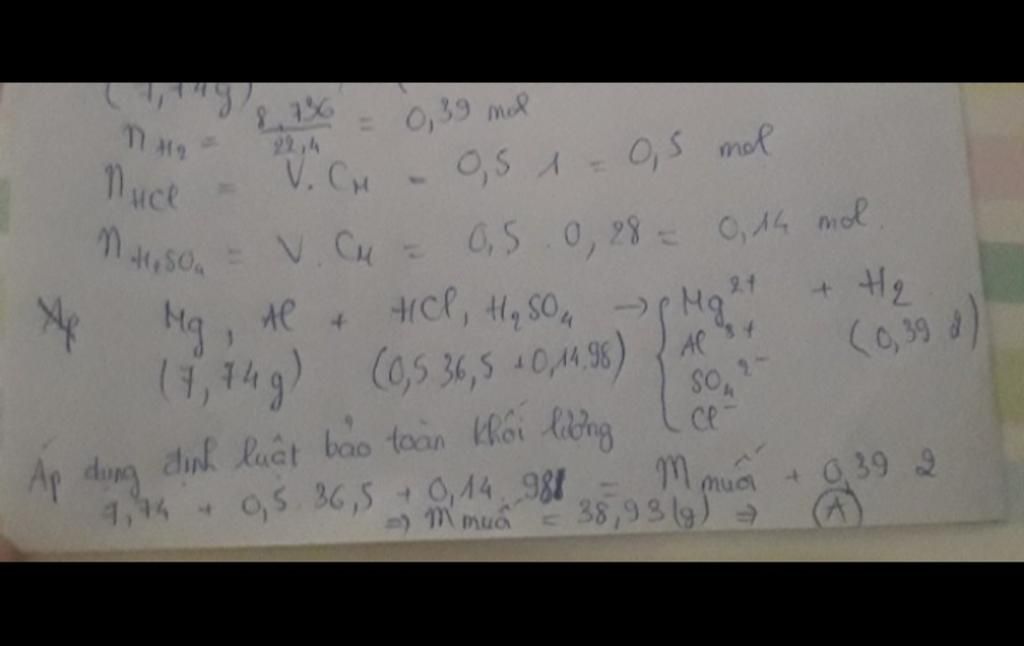 (7,74g)
n H2 = 8,736 / 22,4 = 0,39 mol
n HCl = V. CM = 0,5 1 = 0,5 mol
n H2SO4 = V. CM = 0,5 . 0,28 = 0,14 mol.
Mg, Al + HCl, H2SO4 → { Mg2+ Al3+ SO42- Cl- + H2
(7,74g) (0,5 36,5 + 0,14.98) (0,39 2)
Áp dụng định luật bảo toàn khối lượng
7,74 + 0,5. 36,5 + 0,14. 98 = m muối + 0,39 2
⇒ m muối = 38,93(g) ⇒ A